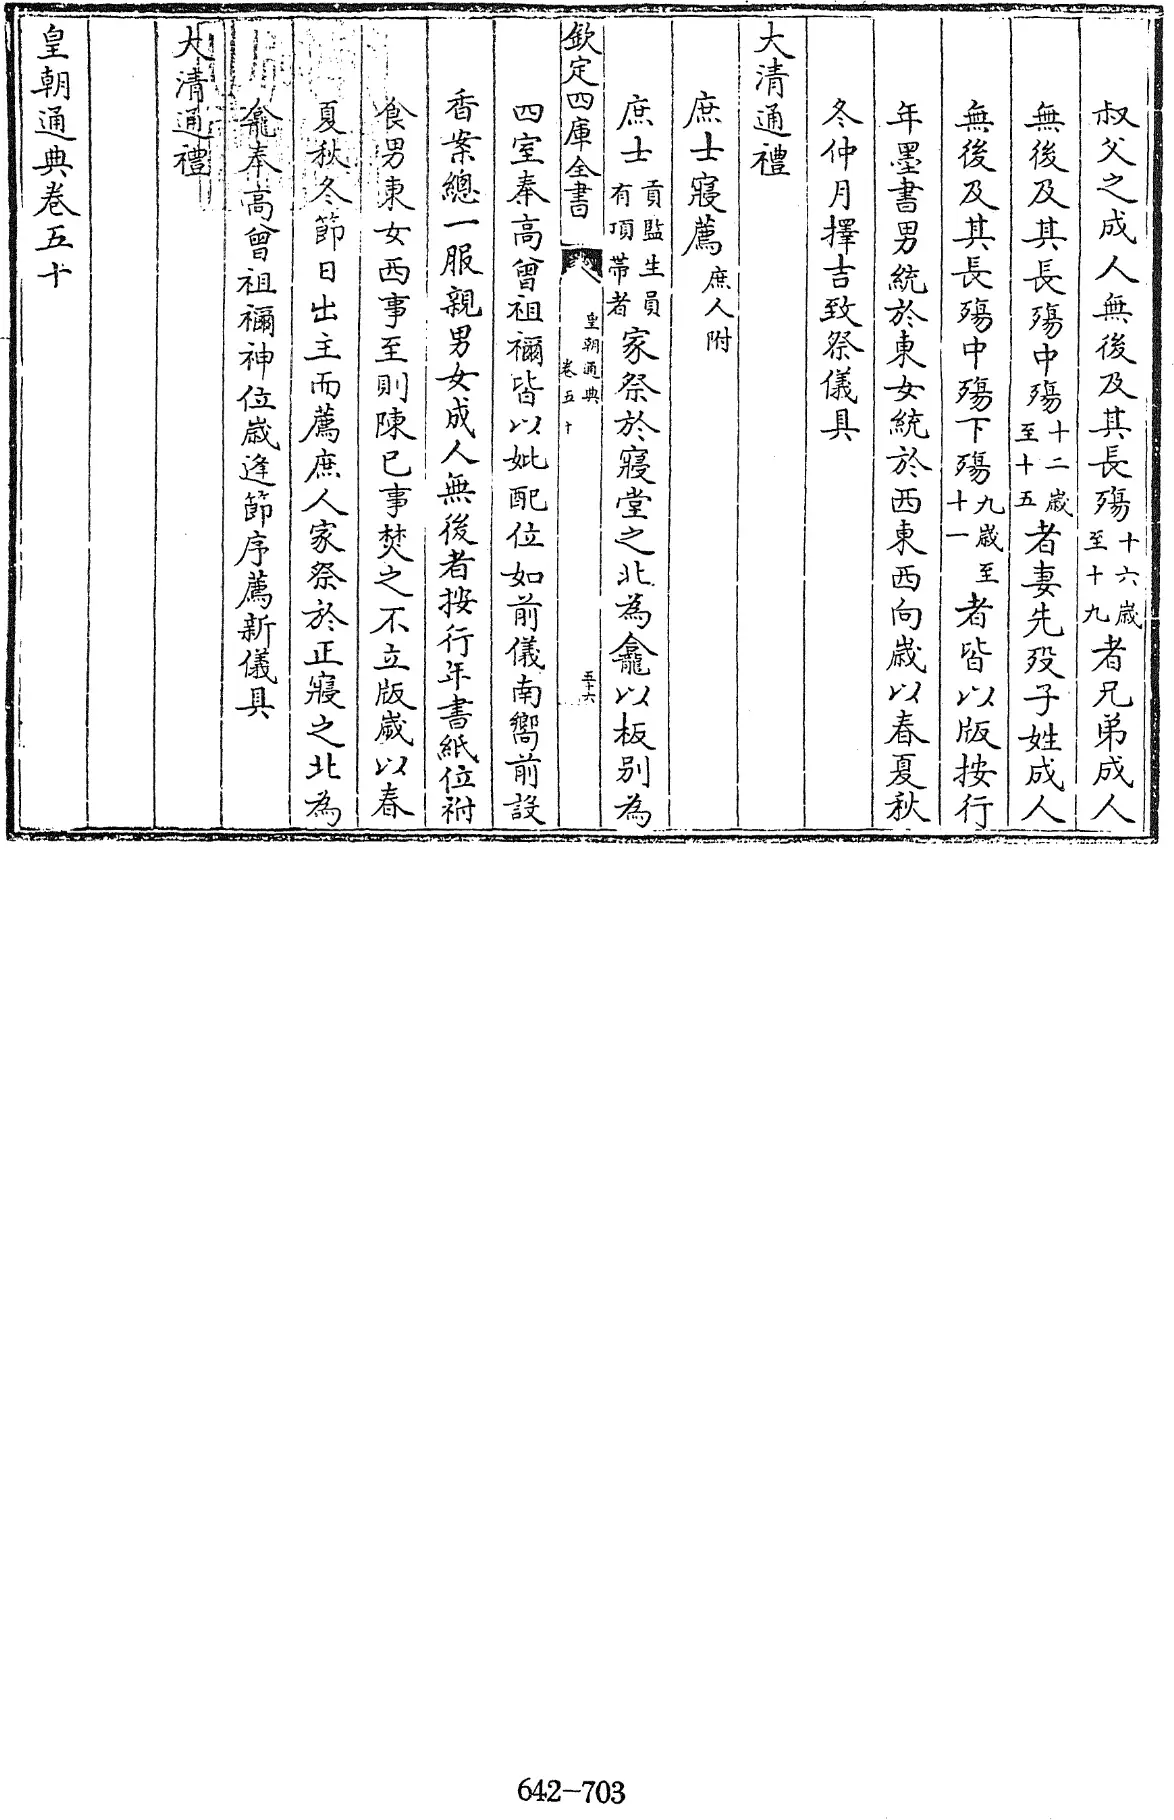 叔父之成人無後及其長殤十六歲至十九者兄弟成人
無後及其長殤中殤十二歲至十五者妻先殁子姓成人
無後及其長殤中殤下殤九歲至十一者皆以版按行
年墨書男統於東女統於西東西向歲以春夏秋
冬仲月擇吉致祭儀具
大清通禮
庶士寢薦庶人附
庶士貢監生員有頂帶者家祭於寢堂之北為龕以板别為
欽定四庫全書
皇朝通典
卷五十
五十六
四室奉高曾祖禰皆以妣配位如前儀南嚮前設
香案總一服親男女成人無後者按行年書紙位祔
食男東女西事至則陳已事焚之不立版歲以春
夏秋冬節日出主而薦庶人家祭於正寢之北為
龕奉高曾祖禰神位歲逢節序薦新儀具
大清通禮
皇朝通典卷五十
642-703